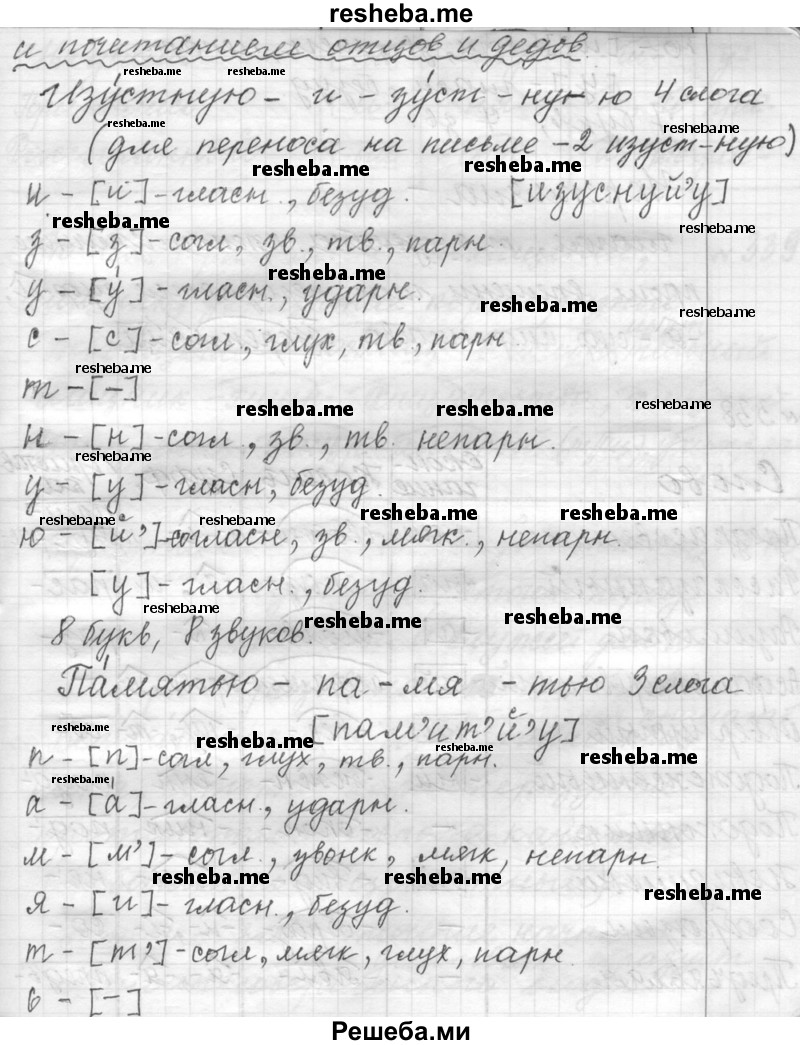 resheba.me
и почитанием отцов и дедов
resheba.me resheba.me
Изу́стную - и - зу́ст - ну - ю 4 слога
resheba.me resheba.me
(для переноса на письме - 2 изуст-ную)
resheba.me resheba.me
и - [и] - гласн., безуд. [изуснуй’у]
resheba.me resheba.me
з - [з] - согл, зв., тв., парн.
resheba.me
у - [у́] - гласн., ударн.
resheba.me
с - [с] - согл., глух, тв., парн
resheba.me
т - [-]
resheba.me resheba.me resheba.me
н - [н] - согл., зв., тв. непарн.
resheba.me
у - [у] - гласн, безуд.
resheba.me resheba.me resheba.me resheba.me
ю - [й’] - согласн, зв., мягк., непарн.
[у] - гласн., безуд.
resheba.me resheba.me resheba.me
8 букв, 8 звуков.
Па́мятью - па - мя - тью 3 слога
resheba.me resheba.me [пам’ит’й’у]
resheba.me resheba.me
п - [п] - согл, глух, тв., парн.
resheba.me
а - [а́] - гласн., ударн.
м - [м’] - согл., звонк, мягк, непарн.
resheba.me resheba.me resheba.me
я - [и] - гласн., безуд.
т - [т’] - согл, мягк, глух, парн.
ь - [-]
Решеба.ми